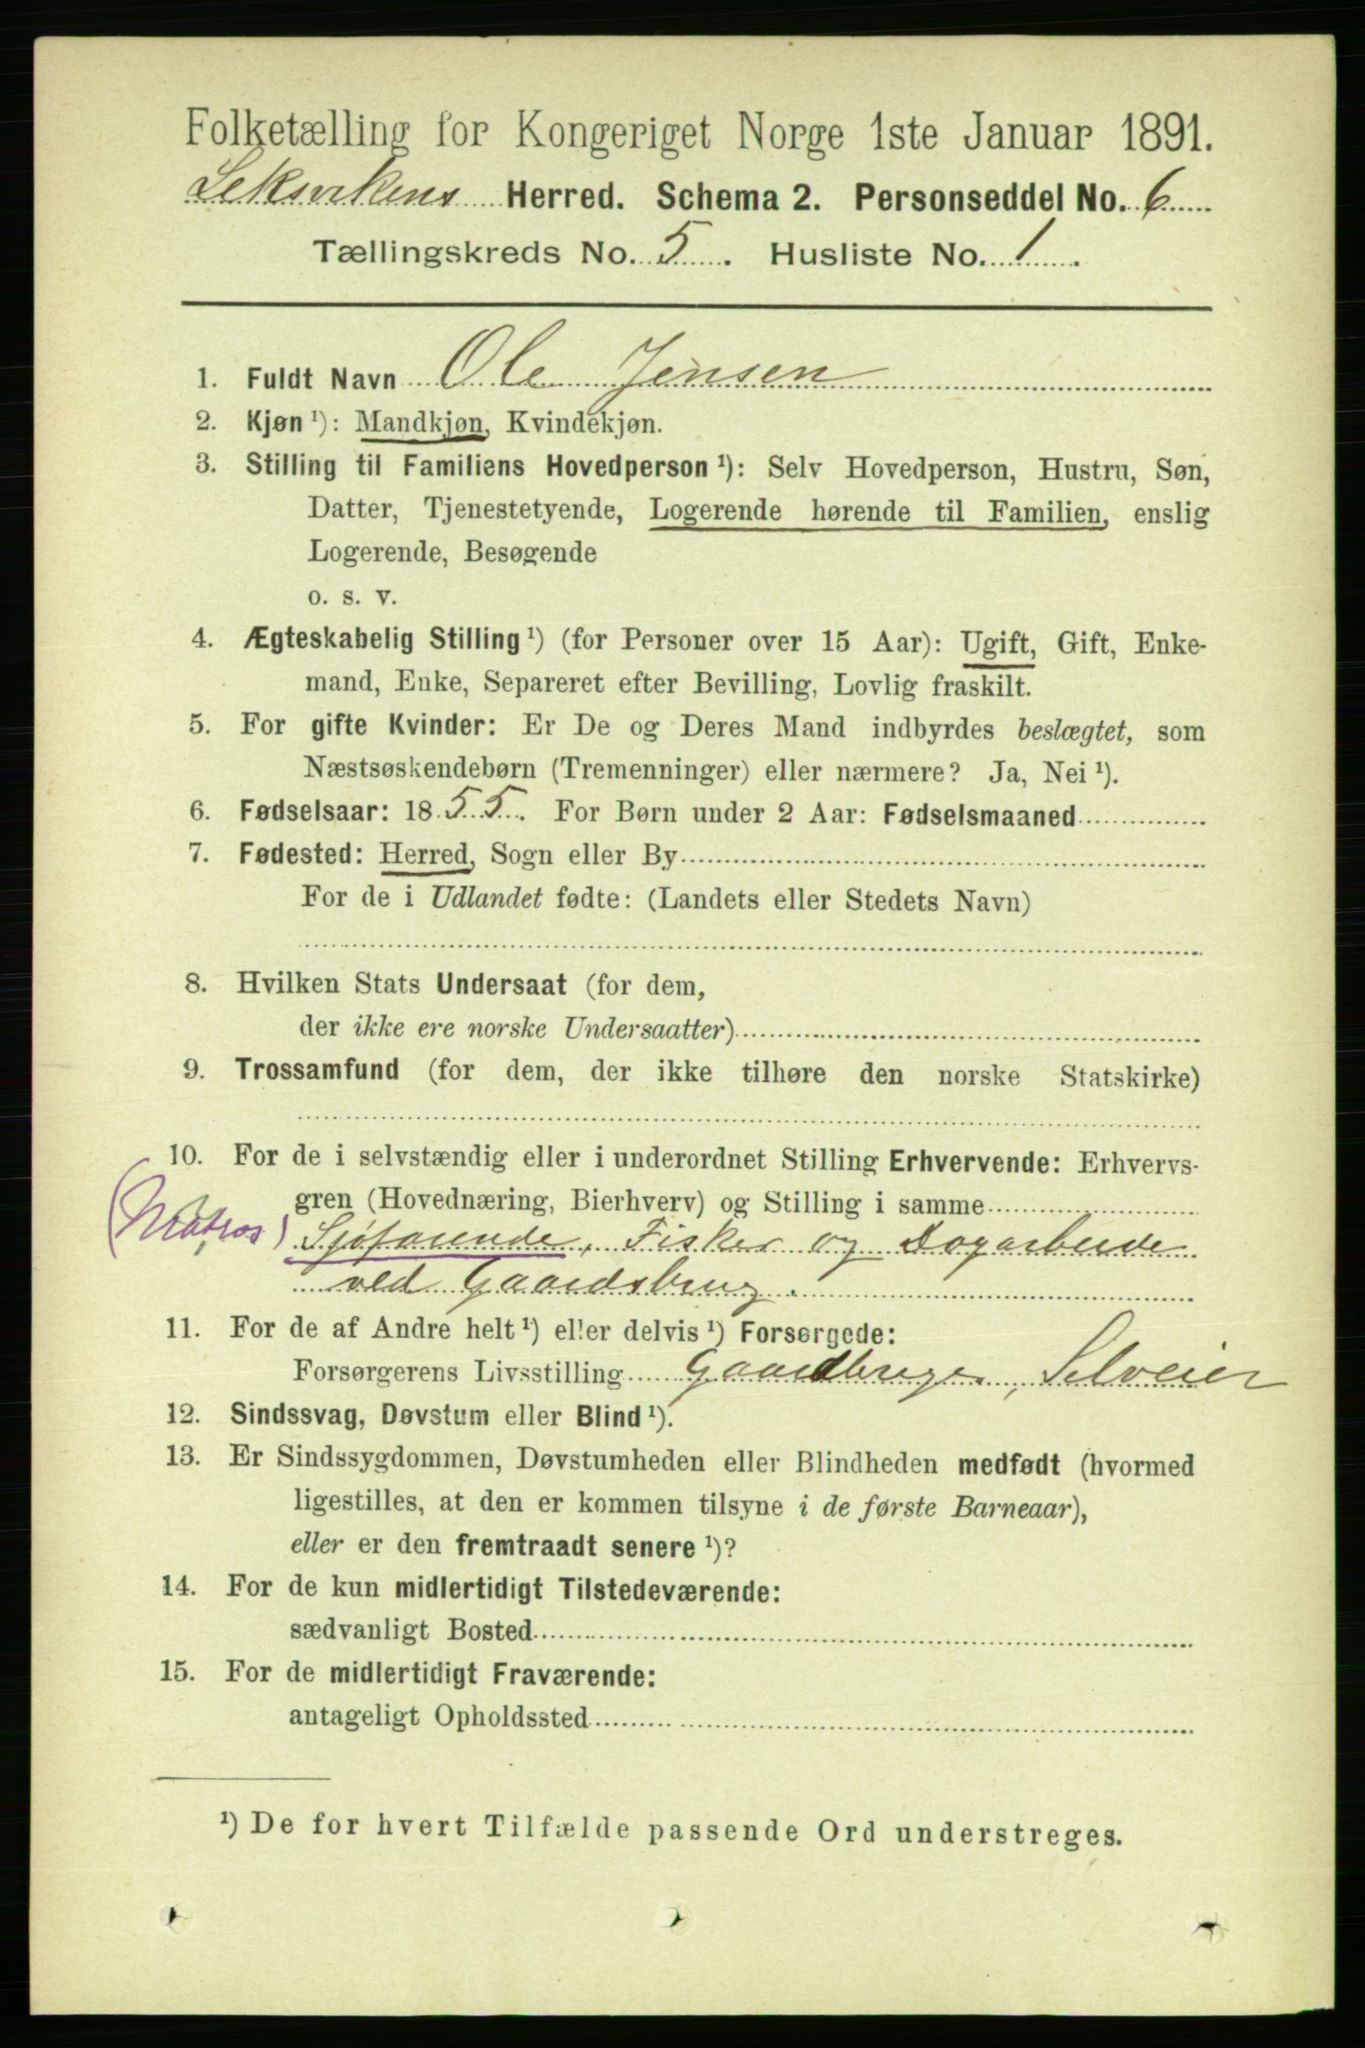 Folketælling for Kongeriget Norge 1ste Januar 1891.
Leksvikens Herred. Schema 2. Personseddel No. 6
Tællingskreds No. 5. Husliste No. 1.
1. Fuldt Navn Ole Jensen
2. Kjøn ¹): Mandkjøn, Kvindekjøn.
3. Stilling til Familiens Hovedperson ¹): Selv Hovedperson, Hustru, Søn,
Datter, Tjenestetyende, Logerende hørende til Familien, enslig
Logerende, Besøgende
o. s. v.
4. Ægteskabelig Stilling ¹) (for Personer over 15 Aar): Ugift, Gift, Enke-
mand, Enke, Separeret efter Bevilling, Lovlig fraskilt.
5. For gifte Kvinder: Er De og Deres Mand indbyrdes beslægtet, som
Næstsøskendebørn (Tremenninger) eller nærmere? Ja, Nei ¹).
6. Fødselsaar: 1855. For Børn under 2 Aar: Fødselsmaaned
7. Fødested: Herred, Sogn eller By
For de i Udlandet fødte: (Landets eller Stedets Navn)
8. Hvilken Stats Undersaat (for dem,
der ikke ere norske Undersaatter)
9. Trossamfund (for dem, der ikke tilhøre den norske Statskirke)
10. For de i selvstændig eller i underordnet Stilling Erhvervende: Erhvervs-
gren (Hovednæring, Bierhverv) og Stilling i samme
(Matros) Sjøfarende, Fisker og Dagarbeide
ved Gaardsbrug.
11. For de af Andre helt ¹) eller delvis ¹) Forsørgede:
Forsørgerens Livsstilling Gaardbruger, Selveier
12. Sindssvag, Døvstum eller Blind ¹).
13. Er Sindssygdommen, Døvstumheden eller Blindheden medfødt (hvormed
ligestilles, at den er kommen tilsyne i de første Barneaar),
eller er den fremtraadt senere ¹)?
14. For de kun midlertidigt Tilstedeværende:
sædvanligt Bosted
15. For de midlertidigt Fraværende:
antageligt Opholdssted
¹) De for hvert Tilfælde passende Ord understreges.